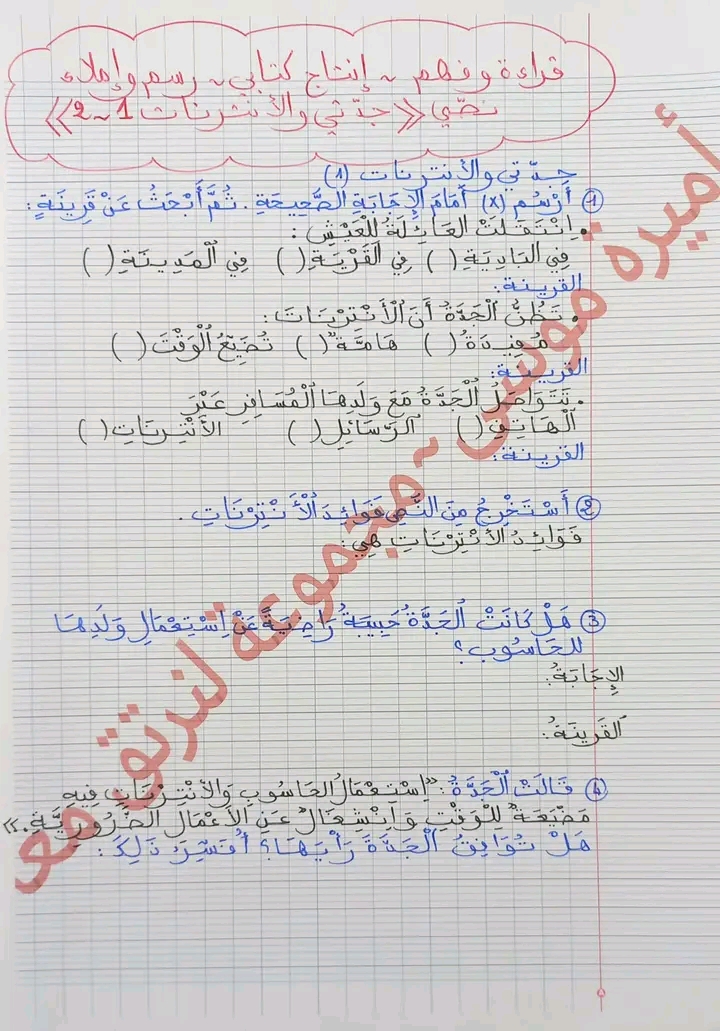 قراءة وفهم ~ إنتاج كتابي ~ رسم وإملاء
نصّي << جدّتي والأنترنات 1~2 >>
جدّتي والأنترنات (1)
1 أَرْسُمُ (x) أَمَامَ الإِجَابَةِ الصَّحِيحَةِ. ثُمَّ أَبْحَثُ عَنْ قَرِينَةٍ:
• اِنْتَقَلَتْ العَائِلَةُ لِلْعَيْشِ:
فِي البَادِيَةِ ( ) فِي القَرْيَةِ ( ) فِي المَدِينَةِ ( )
القرينة:
• تَظُنُّ الْجَدَّةُ أَنَّ الأَنْتِرْنَات:
مُفِيدَةُ ( ) هَامَّةٌ ( ) تُضَيِّعُ الْوَقْتَ ( )
القرينة:
• تَتَوَاصَلُ الْجَدَّةُ مَعَ وَلَدِهَا الْمُسَافِرِ عَبْرَ
الْهَاتِفِ ( ) الرَّسَائِلِ ( ) الأَنْتِرْنَاتِ ( )
القرينة:
2 أَسْتَخْرِجُ مِنَ النَّصِّ فَوَائِدَ الْأَنْتِرْنَاتِ.
فَوَائِدُ الأَنْتِرْنَاتِ هِيَ:
3 هَلْ كَانَتْ الْجَدَّةُ حَبِيبَةُ رَاضِيَةً عَنْ اِسْتِعْمَالِ وَلَدِهَا
للحَاسُوب؟
الإِجَابَةُ:
القَرِينَةُ:
4 قَالَتْ الْجَدَّةُ: "اِسْتِعْمَالُ الحَاسُوبِ وَالأَنْتِرْنَاتِ فِيهِ
مَضْيَعَةٌ لِلْوَقْتِ وَاِنْشِغَالٌ عَنِ الأَعْمَالِ الضَّرُورِيَّةِ."
هَلْ تُوَافِقُ الْجَدَّةَ رَأْيَهَا؟ أُفَسِّرُ ذَلِكَ:
أميرة موسى ~ مجموعة لنرتق معا